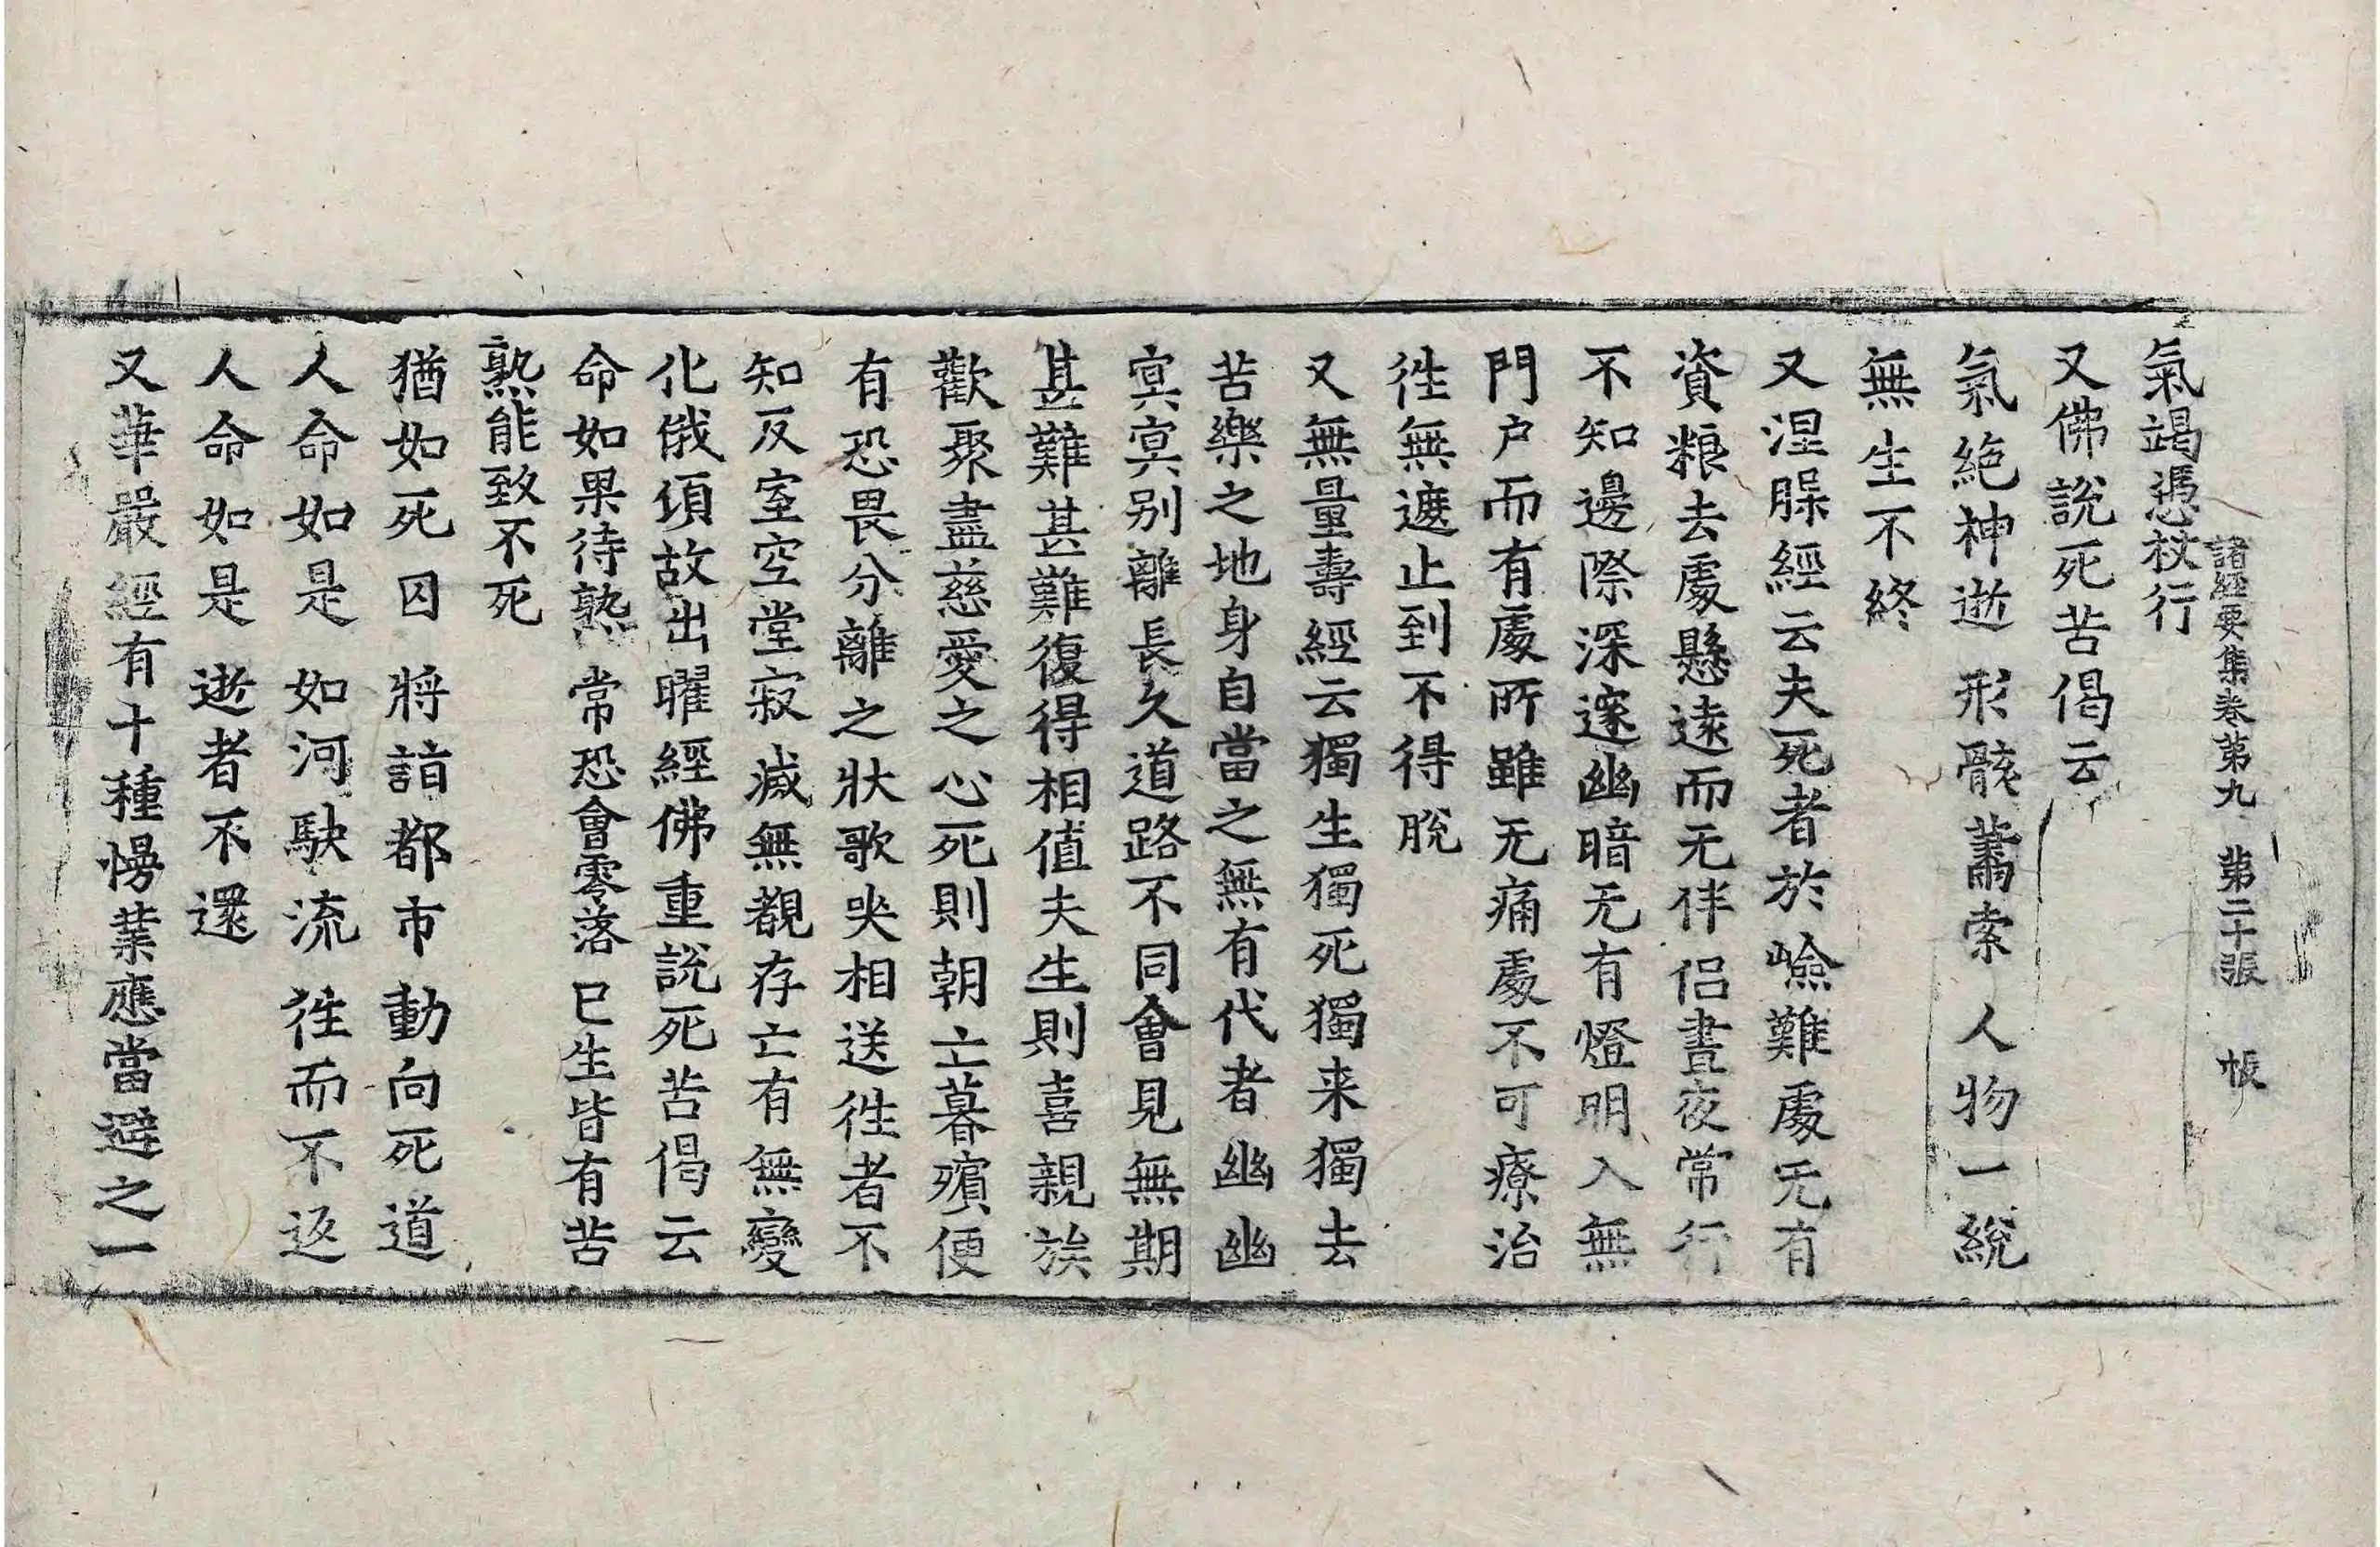 諸經要集卷第九 第二十張 帳
氣竭憑杖行
又佛說死苦偈云
氣絕神逝 形骸蕭索 人物一統
無生不終
又涅槃經云夫死者於嶮難處无有
資粮去處懸遠而无伴侣晝夜常行
不知邊際深邃幽暗无有燈明入無
門户而有處所雖无痛處不可療治
徃無遮止到不得脫
又無量壽經云獨生獨死獨来獨去
苦樂之地身自當之無有代者幽幽
冥冥别離長久道路不同會見無期
甚難甚難復得相值夫生則喜親族
歡聚盡慈愛之心死則朝亡暮殯便
有恐畏分離之狀歌哭相送徃者不
知反室空堂寂滅無覩存亡有無變
化俄頃故出曜經佛重說死苦偈云
命如果待熟 常恐會零落 已生皆有苦
熟能致不死
猶如死囚 將詣都市動向死道
人命如是 如河駃流 徃而不返
人命如是 逝者不還
又華嚴經有十種慢業應當避之一